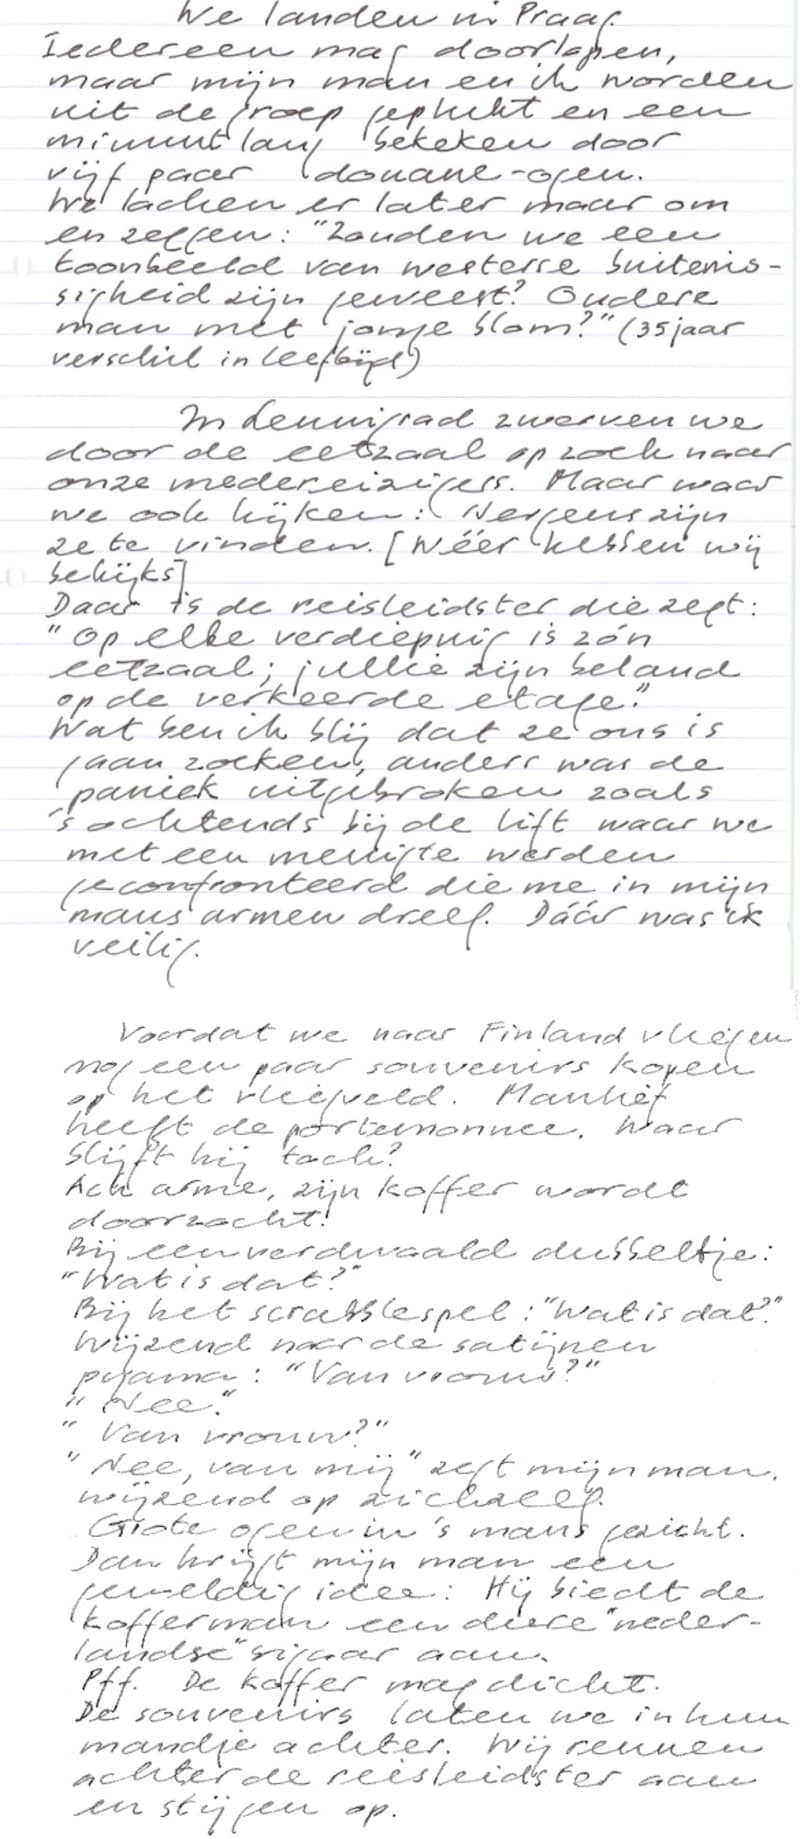 We landen in Praag.
Iedereen mag doorlopen,
maar mijn man en ik worden
uit de groep geplukt en een
minuut lang bekeken door
vijf paar douane-ogen.
We lachen er later maar om
en zeggen: "Zouden we een
toonbeeld van westerse buitenis-
sigheid zijn geweest? Oudere
man met jonge blom?" (35 jaar
verschil in leeftijd)
In Lenningrad zwerven we
door de eetzaal op zoek naar
onze medereizigers. Maar waar
we ook kijken: Nergens zijn
ze te vinden. [Wéér hebben wij
bekijks]
Daar is de reisleidster die zegt:
"Op elke verdieping is zó'n
eetzaal; jullie zijn beland
op de verkeerde etage."
Wat ben ik blij dat ze ons is
gaan zoeken, anders was de
paniek uitgebroken zoals
's ochtends bij de lift waar we
met een menigte werden
geconfronteerd die me in mijn
mans armen dreef. Dáár was ik
veilig.
Voordat we naar Finland vliegen
nog een paar souvenirs kopen
op het vliegveld. Manlief
heeft de portemonnee. Waar
blijft hij toch?
Ach arme, zijn koffer wordt
doorzocht!
Bij een verdwaald dubbeltje:
"Wat is dat?"
Bij het scrabblespel: "Wat is dat?"
Wijzend naar de satijnen
pyama: "Van vrouw?"
"Nee."
"Van vrouw?"
"Nee, van mij" zegt mijn man,
wijzend op zichzelf.
Grote ogen in 's mans gezicht.
Dan krijgt mijn man een
geweldig idee: Hij biedt de
kofferman een dure "neder-
landse" sigaar aan.
Pff. De koffer mag dicht.
De souvenirs laten we in hun
mandje achter. Wij rennen
achter de reisleidster aan
en stijgen op.